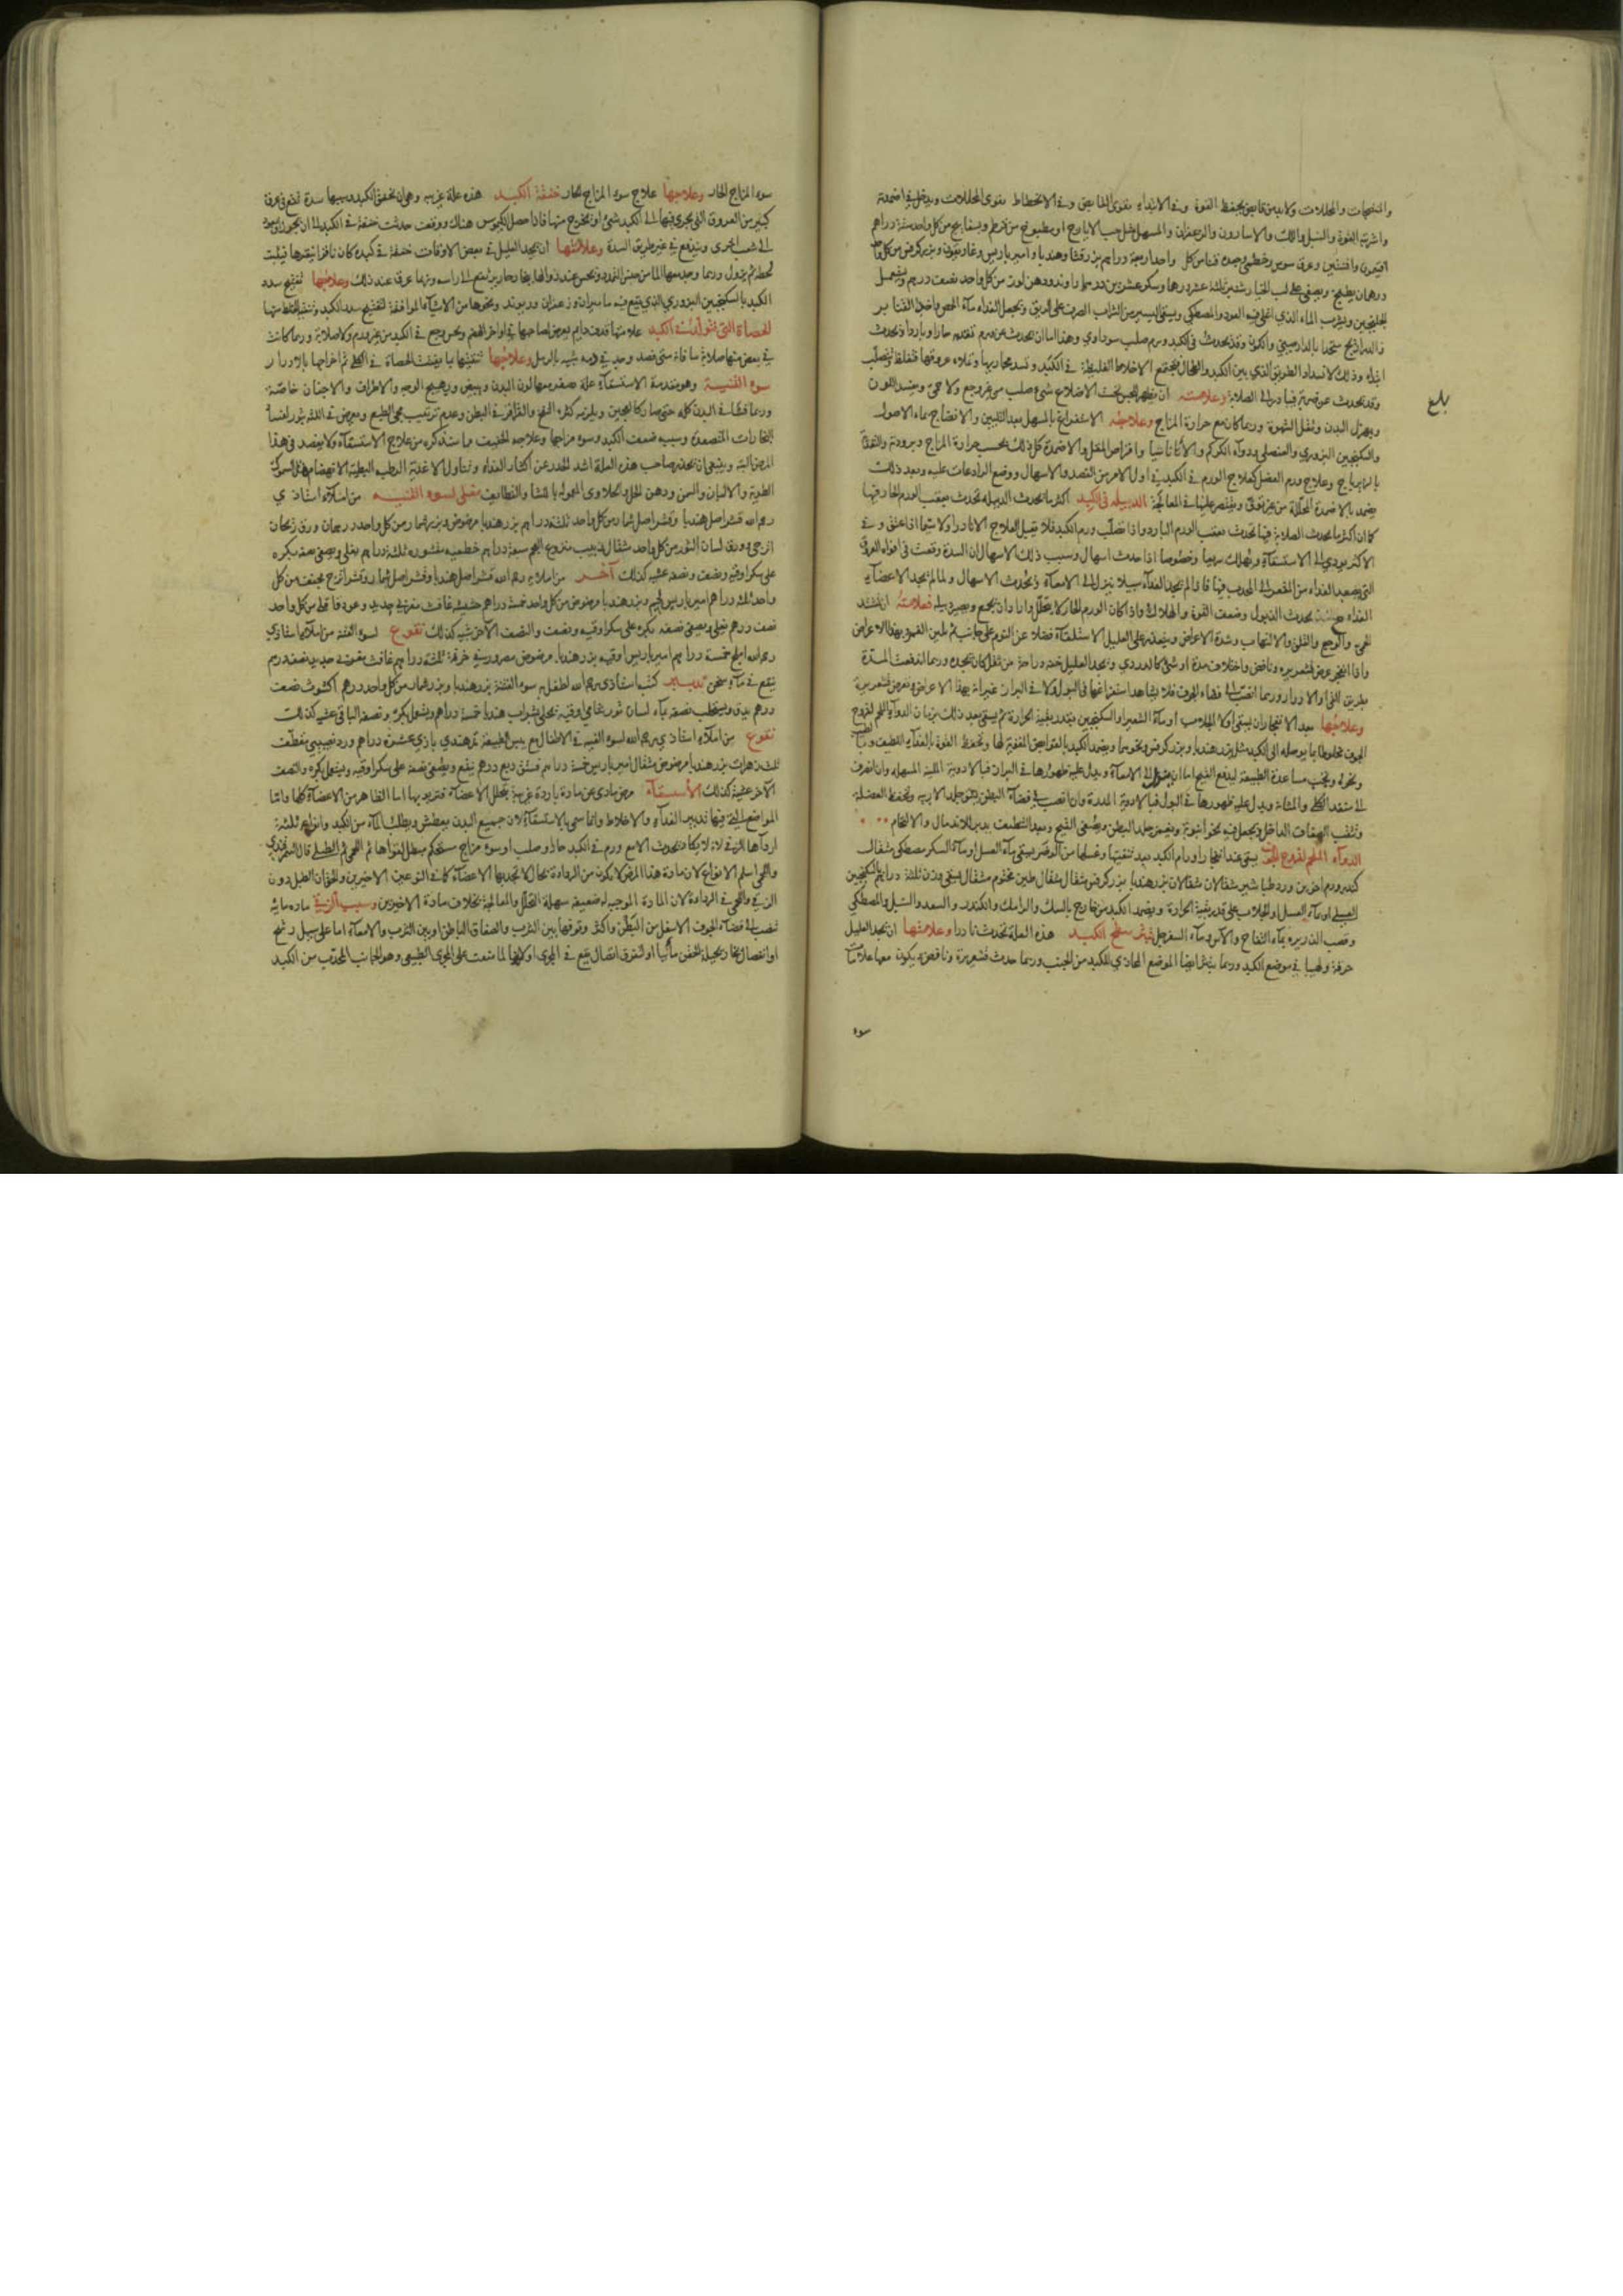 والمنضجات والمحللات ولابد من قابض يحفظ القوة وفى الابتداء يقوى القابض وفى الانحطاط يقوى المحللات ويدخل فى اضمدته
واشربته الفوة والسنبل واللك والاسارون والزعفران والمسهل مثل حب الايارج او مطبوخ من قرطم وبسفايج من كل واحد ستة دراهم
افتيمون وافسنتين وعرق سوس وخطمى من كل واحد اربعة دراهم بزر قثا وهندبا وامير باريس وغاريقون وبزر كرفس من كل
درهمان يطبخ ويصفى على لب الخيار شنبر ثلثة عشر درهما وسكر عشرين درهما راوند ودهن لوز من كل واحد نصف درهم ويستعمل
الجلنجبين ويشرب الماء الذي اغلى فيه العود والمصطكى ويسقى اليسير من الشراب الصرف على الريق ويجعل الغذاء ماء الحمص واخف القنابر
والدراريج متخذا بالدارصيني والكمون وقد يحدث فى الكبد ورم صلب سوداوي وهذا اما ان يحدث عن ورم تقدمه حارا وباردا او يحدث
ابتداء وذلك لانسداد الطريق الذي بين الكبد والطحال فيجتمع الاخلاط الغليظة فى الكبد وتسد مجاريها وتملاء عروقها فتغلظ وتصلب
وقد يحدث عن ضربة فيبادر الى الصلابة وعلامته ان يظهر للحس تحت الاضلاع شئ صلب من غير وجع ولا حمى ويفسد اللون
ويهزل البدن وتقل الشهوة وربما كان مع حرارة المزاج وعلاجه الاستفراغ بالمسهل بعد التليين والانضاج بماء الاصول
والسكنجبين البزوري والعنصلى ودواء الكركم والاثاناسيا واقراص المقل والاضمدة كل ذلك بحسب حرارة المزاج وبرودته والتغذي
بالزيرباج وعلاج ورم العضل كعلاج الورم فى الكبد فى اول الامر من الفصد والاسهال ووضع الرادعات عليه وبعد ذلك
يضمد بالاضمدة المحللة من غير توق ويقتصر عليها فى المعالجة الدبيلة فى الكبد اكثر ما تحدث الدبيلة تحدث بعقب الورم الحار فيها
كما ان اكثر ما يحدث الصلابة فيها تحدث بعقب الورم البارد واذا صلب ورم الكبد فلا يقبل العلاج الا نادرا ولاسيما اذا عتق وفى
الاكثر يودي الى الاستسقاء ويهلك سريعا وخصوصا اذا حدث اسهال وسبب ذلك الاسهال ان السدة وقعت فى افواه العروق
التى يصعد الغذاء من المقعر الى المحدب فيها فاذا لم يجد الغذاء سبيلا ينزل الى الامعاء ويحدث الاسهال ولما لم يجد الاعضاء
الغذاء يحدث الذبول وضعف القوة والهلاك واذا كان الورم الحار لا يتحلل واراد ان يجمع ويصير دبيله فعلامته ان تشتد
الحمى والوجع والقلق والالتهاب وشدة الاعراض ويتعذر على العليل الاستلقاء فضلا عن النوم على جانب ثم يلين الغمز ويهدا الاعراض
واذا انفجر عرض قشعريره ونافض واختلاف مدة او شئ كالدردي ويجد العليل خفة وراحة من ثقل كان يجده وربما اندفعت المدة
بطريق القئ والادرار وربما انصب الى فضاء الجوف فلا يشاهد استفراغها فى البول ولا فى البراز غير انه يهدا الاعراض ويعرض قشعريره
وعلاجها بعد الانفجار ان يسقى اولا الجلاب او ماء الشعير او السكنجبين بقدر بقية الحرارة ثم يسقى بعد ذلك بزمان الدواء الملحم لقروح
الجوف مخلوطا بما يوصله الى الكبد مثل بزر هندبا وبزر كرفس ونحوهما ويضمد الكبد بالقوابض المقوية لها وتحفظ القوة بالغذاء اللطيف
ونحوه ويجب مساعدة الطبيعة لدفع القيح اما ان ينزل الى الامعاء ويدل عليه ظهورها فى البراز فبالادوية اللينة المسهلة وان انصرف
الى منفذ الكلى والمثانة ويدل عليه ظهورها فى البول فبالادوية المدرة وان انصب الى فضاء البطن يشق جلد الاربيه وتحفظ العضلة
وتثقب الصفاق الداخل ويجعل فيه نحو انبوبة ويغمز جلد البطن ويصفى القيح وبعد التنظيف يدبر للاندمال والالتحام
الدواء الملحم لقروح الكبد يسقى عند انفجار اورام الكبد بعد تنقيتها وغسلها من الوضر يسقى بماء العسل او ماء السكر مصطكى مثقال
كندر ودم اخوين وورد طباشير مثقالان مثقالان بزر هندبا بزر كرفس مثقال مثقال طين مختوم مثقال يسقى وزن ثلثة دراهم بالسكنجبين
العسلى او بماء العسل او الجلاب على قدر بقية الحرارة ويضمد الكبد من خارج بالسك والرامك والكندر والسعد والسنبل والمصطكى
وقصب الذريره بماء التفاح والآس وماء السفرجل بثر سطح الكبد هذه العلة تحدث نادرا وعلامتها ان يجد العليل
حرقة ولهيبا فى موضع الكبد وربما بثر ايضا الموضع المحاذي للكبد من الجنب وربما حدث قشعريرة ونافض ويكون معها علامات
سوء
بلغ
سوء المزاج الحار وعلاجها علاج سوء المزاج الحار خفقة الكبد هذه علة غريبه وهى ان تخفق الكبد وسببها سدة تقع فى عرق
كبير من العروق التى يجرى فيها الى الكبد شئ او يخرج منها فاذا حصل الكيموس هناك ووقف حدثت خفقة فى الكبد الى ان يجوز او يعود
الى شعب اخرى ويندفع فى غير طريق السدة وعلامتها ان يجد العليل فى بعض الاوقات خفقة فى كبده كان ناقرا ينقرها فيلبث
لحظة ثم يزول وربما وجد معها الما من جنس التمدد ويحس عند زوالها بخار حار يرتفع الى راسه وربما عرق عند ذلك وعلاجها تفتيح سدد
الكبد بالسكنجبين البزوري الذي ينقع فيه ماميران وزعفران وريوند ونحوها من الاشياء الموافقة لتفتيح سدد الكبد وتنقية الخلط منها
الحصاة التى تتولد فى الكبد علامتها قذف دايم يعرض لصاحبها فى اواخر الهضم ويحس وجع فى الكبد من غير ورم ولا صلابة وربما كانت
فى بعض منها صلابة ما فانه متى فصد وجد فى دمه شبيه بالرمل وعلاجها تنقيتها بما يفتت الحصاة فى الكلى ثم اخراجها بالادرار
سوء القنية وهو مقدمة الاستسقاء علة يصفر معها لون البدن ويبيض ويتهيج الوجه والاطراف والاجفان خاصة
وربما فشا فى البدن كله حتى صار كالعجين ويلزمه كثرة النفخ والقراقر فى البطن وعدم ترتيب مجى الطبع ويعرض فى اللثة بثور لفساد
البخارات المتصعدة وسببه ضعف الكبد وسوء مزاجها وعلاجه الخفيف مما سنذكره من علاج الاستسقاء ولا يفصد فى هذا
المرض البتة وينبغى ان يحذر صاحب هذه العلة اشد الحذر عن اكثار الغذاء وتناول الاغذية الرطبه البطيئة الانهضام مثل السموك
الطرية والالبان والسمن ودهن الحل والحلاوى المعموله بالنشا والقطايف مغلى لسوء القنيه من املاء استاذي
رحمه الله قشر اصل هندبا وقشر اصل شمار من كل واحد ثلثة دراهم بزر هندبا مرضوض وبزر شمار من كل واحد درهمان ورق ريحان
اترجى وورق لسان الثور من كل واحد مثقال زبيب منزوع العجم سبعة دراهم خطميه مقشوره ثلثة دراهم يغلى ويصفى نصفه بكره
على سكر اوقيه ونصف ونصفه عشيه كذلك آخر من املائه رحمه الله قشر اصل هندبا وقشر اصل شمار وقشر اترج مجفف من كل
واحد ثلثة دراهم امير باريس لحيم وبزر هندبا مرضوض من كل واحد خمسة دراهم حشيشة غافث بغرفى جديد وعود قاقلى من كل واحد
نصف درهم يغلى ويصفى نصفه بكره على سكر اوقيه ونصف والنصف الآخر عشيه كذلك نقوع لسوء القنية من املاء استاذي
رحمه الله اهليلج خمسة دراهم امير باريس اوقيه بزر هندبا مرضوض مصرور فى خرقة ثلثة دراهم غافث بغوصى جديد نصف درهم
ينقع فى ماء سخن تدبير كتب استاذي رحمه الله لطفل به سوء القنية بزر هندبا وبزر شمار من كل واحد درهم اكشوث نصف
درهم يدق ويستحلب نصفه بماء لسان ثور شامى اوقيه يحلى بشراب هندبا خمسة دراهم ويستعمل بكرة ونصفه الباقى عشيه كذلك
نقوع من املاء استاذي رحمه الله لسوء القنيه فى الاطفال مع يبس الطبيعة تمر هندي بازي عشرة دراهم ورد نصيبى مقطف
ثلث زهرات بزر هندبا مرضوض مثقال امير باريس خمسة دراهم فستق ربع درهم ينقع ويصفى نصفه على سكر اوقيه ويستعمل بكره والنصف
الآخر عشية كذلك الاستسقاء مرض مادي عن مادة باردة غريبة تتخلل الاعضاء فتربو بها اما الظاهر من الاعضاء كلها واما
المواضع التى فيها تدبير الغذاء والاخلاط وانما سمى بالاستسقاء لان جميع البدن يعطش ويطلب الماء من الكبد وانواعه ثلثة
ارداها الزقى لانه لا يكاد يحدث الا مع ورم فى الكبد حار وصلب او سوء مزاج مستحكم مبطل لقواها ثم اللحمى ثم الطبلى قال السمرقندي
واللحمى اسلم الانواع لان مادة هذا المرض لا يكون من الرداءة بحال لا تجذبها الاعضاء كما فى النوعين الاخيرين والحق ان الطبلى دون
الزقى واللحمى فى الرداءة لان المادة الموجبه له ضعيفه سهلة التحلل والمعالجة بخلاف مادة الاخيرين وسبب الزقى ماده مائيه
تنصب الى فضاء الجوف الاسفل من البطن واكثر وقوفها بين الثرب والصفاق الباطن او بين الثرب والامعاء اما على سبيل رشح
او انفصال بخار يحيله الحقن مائيا او لتفرق اتصال يقع فى المجرى او لانها لما منعت على المجرى الطبيعى وهو الجانب المحدب من الكبد